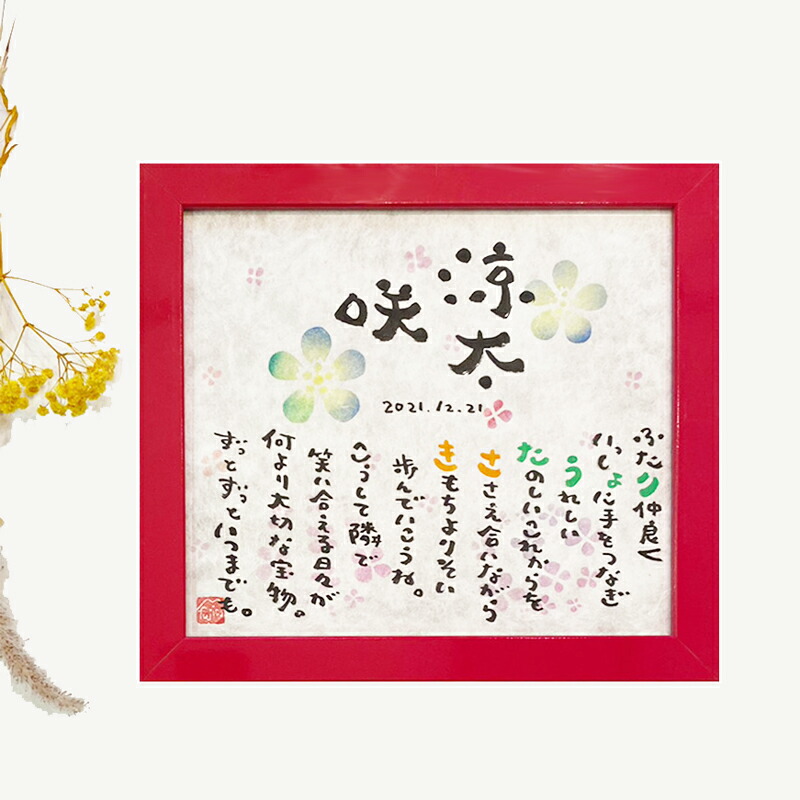 涼太
咲
2021.12.21
ふたり仲良く
いっしょに手をつなぎ
うれしい
たのしいこれからを
ささえ合いながら
きもちよりそい
歩んでいこうね。
こうして隣で
笑い合える日々が
何より大切な宝物。
ずっとずっといつまでも。